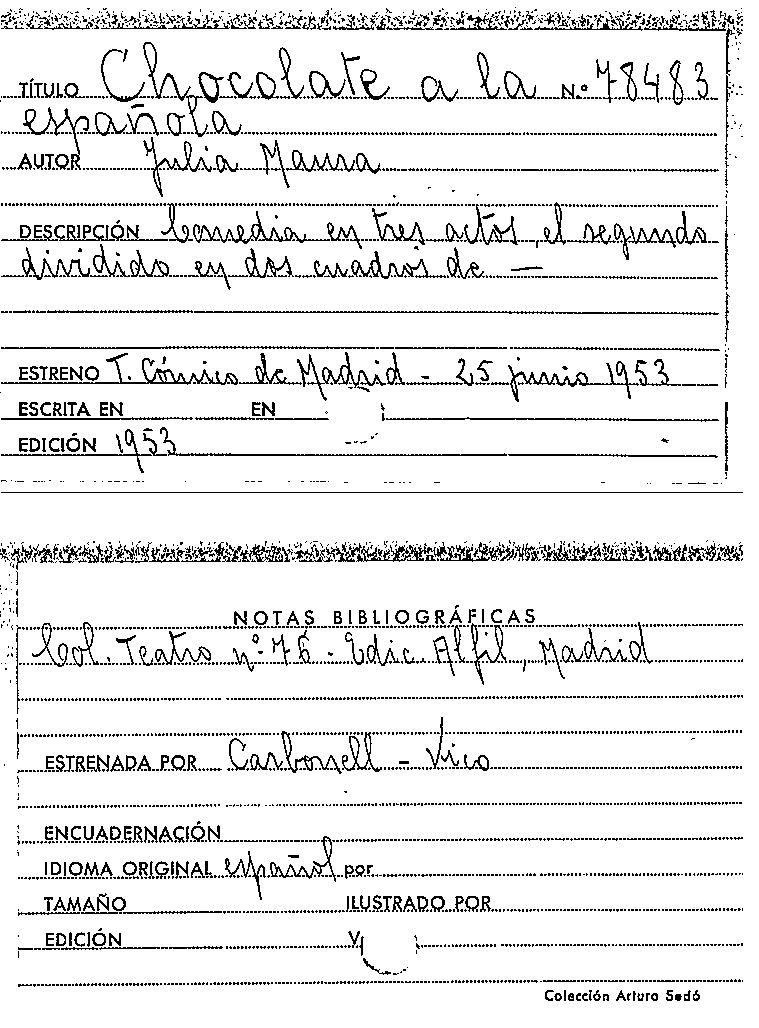 TÍTULO Chocolate a la N.º 78483
española
AUTOR Julia Maura
DESCRIPCIÓN Comedia en tres actos, el segundo
dividido en dos cuadros de —
ESTRENO T. Cómico de Madrid - 25 junio 1953
ESCRITA EN EN
EDICIÓN 1953
NOTAS BIBLIOGRÁFICAS
Col. Teatro nº 76 - Edic. Alfil, Madrid
ESTRENADA POR Carbonell - Vico
ENCUADERNACIÓN
IDIOMA ORIGINAL español por
TAMAÑO ILUSTRADO POR
EDICIÓN V
Colección Arturo Sedó